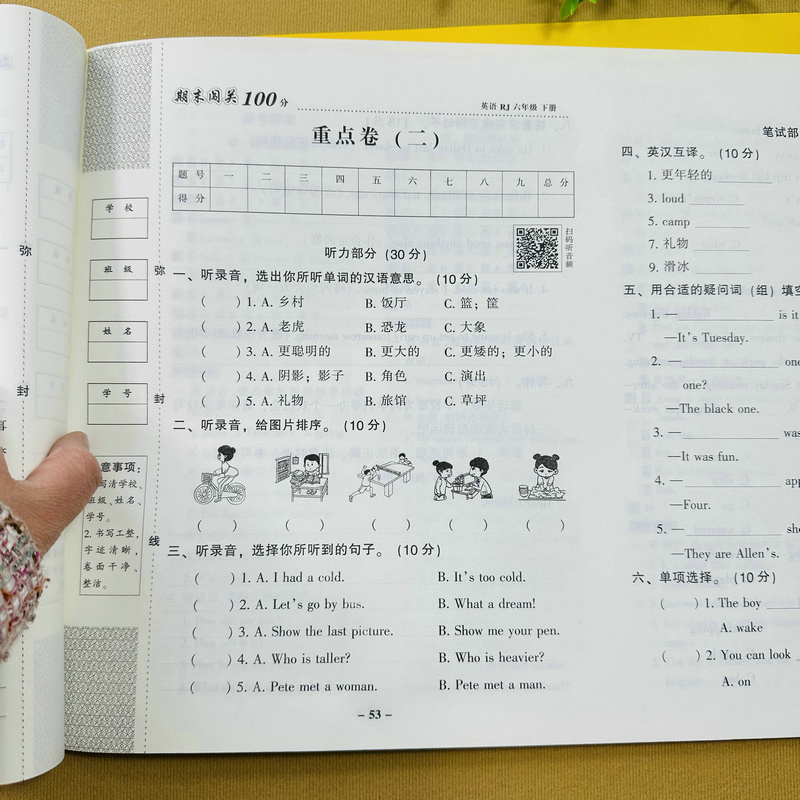 期末闯关100分
英语 RJ 六年级 下册
重点卷(二)
题 号 一 二 三 四 五 六 七 八 九 总 分
得 分
扫码听音频
听力部分(30分)
一、听录音,选出你所听单词的汉语意思。(10分)
( )1. A. 乡村 B. 饭厅 C. 篮;筐
( )2. A. 老虎 B. 恐龙 C. 大象
( )3. A. 更聪明的 B. 更大的 C. 更矮的;更小的
( )4. A. 阴影;影子 B. 角色 C. 演出
( )5. A. 礼物 B. 旅馆 C. 草坪
二、听录音,给图片排序。(10分)
( ) ( ) ( ) ( ) ( )
三、听录音,选择你所听到的句子。(10分)
( )1. A. I had a cold. B. It's too cold.
( )2. A. Let's go by bus. B. What a dream!
( )3. A. Show the last picture. B. Show me your pen.
( )4. A. Who is taller? B. Who is heavier?
( )5. A. Pete met a woman. B. Pete met a man.
– 53 –
学 校
班 级
姓 名
学 号
意事项:
写清学校、
班级、姓名、
学号。
2. 书写工整,
字迹清晰,
卷面干净、
整洁。
弥
封
线
弥
封
笔试部
四、英汉互译。(10分)
1. 更年轻的
3. loud
5. camp
7. 礼物
9. 滑冰
五、用合适的疑问词(组)填空
1. — is it
—It's Tuesday.
2. — one
one?
—The black one.
3. — was
—It was fun.
4. — app
—Four.
5. — she
—They are Allen's.
六、单项选择。(10分)
( )1. The boy
A. wake
( )2. You can look
A. on